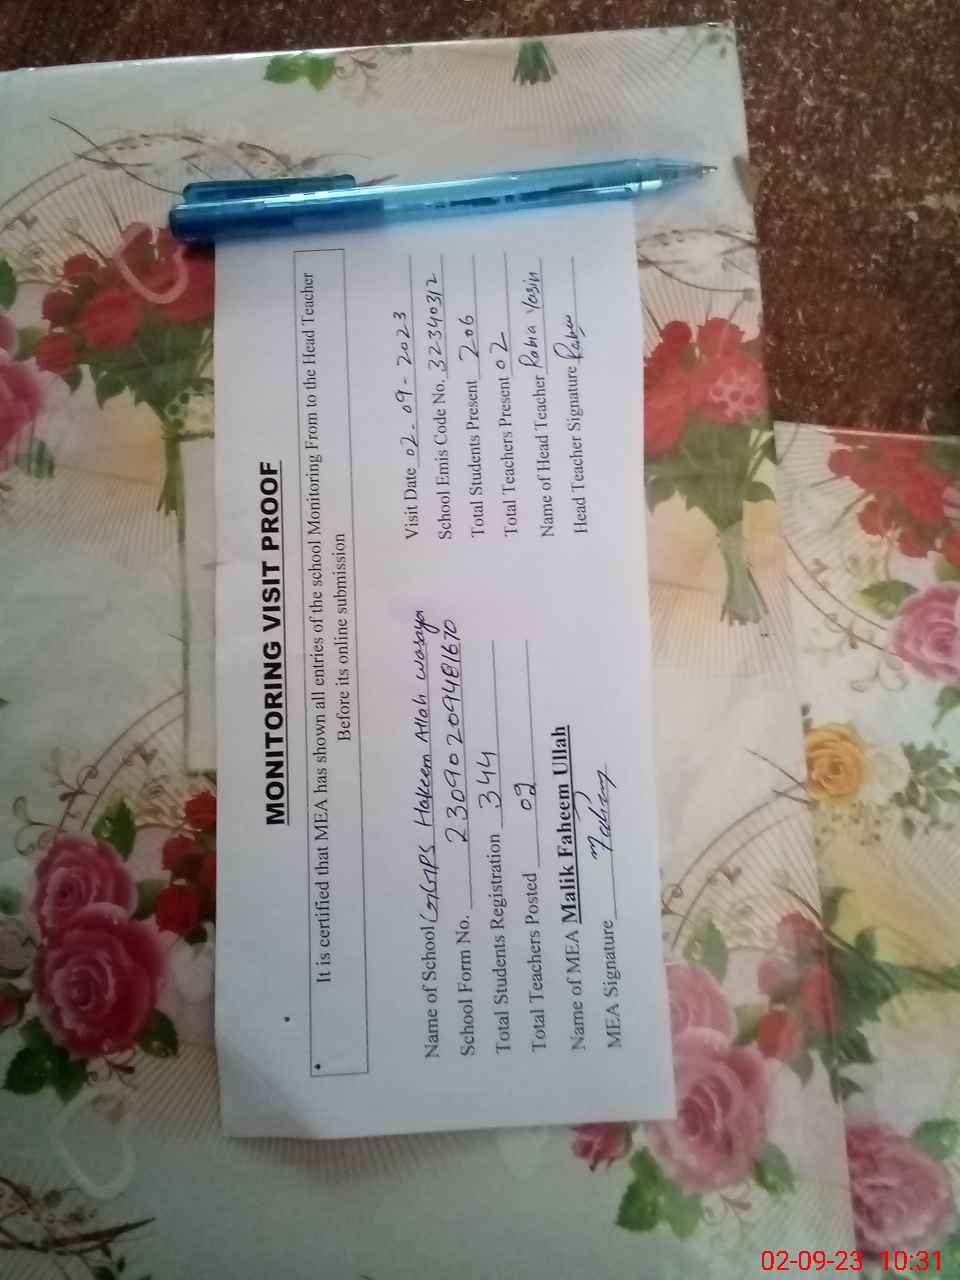 MONITORING VISIT PROOF
It is certified that MEA has shown all entries of the school Monitoring From to the Head Teacher
Before its online submission
Name of School GGPS Hakeem Allah Wasaya
Visit Date 02-09-2023
School Form No. 230902094816 70
School Emis Code No. 32340312
Total Students Registration 344
Total Students Present 206
Total Teachers Posted 02
Total Teachers Present 02
Name of MEA Malik Faheem Ullah
Name of Head Teacher Rabia Yasin
MEA Signature Faheem
Head Teacher Signature Rabia
02-09-23 10:31